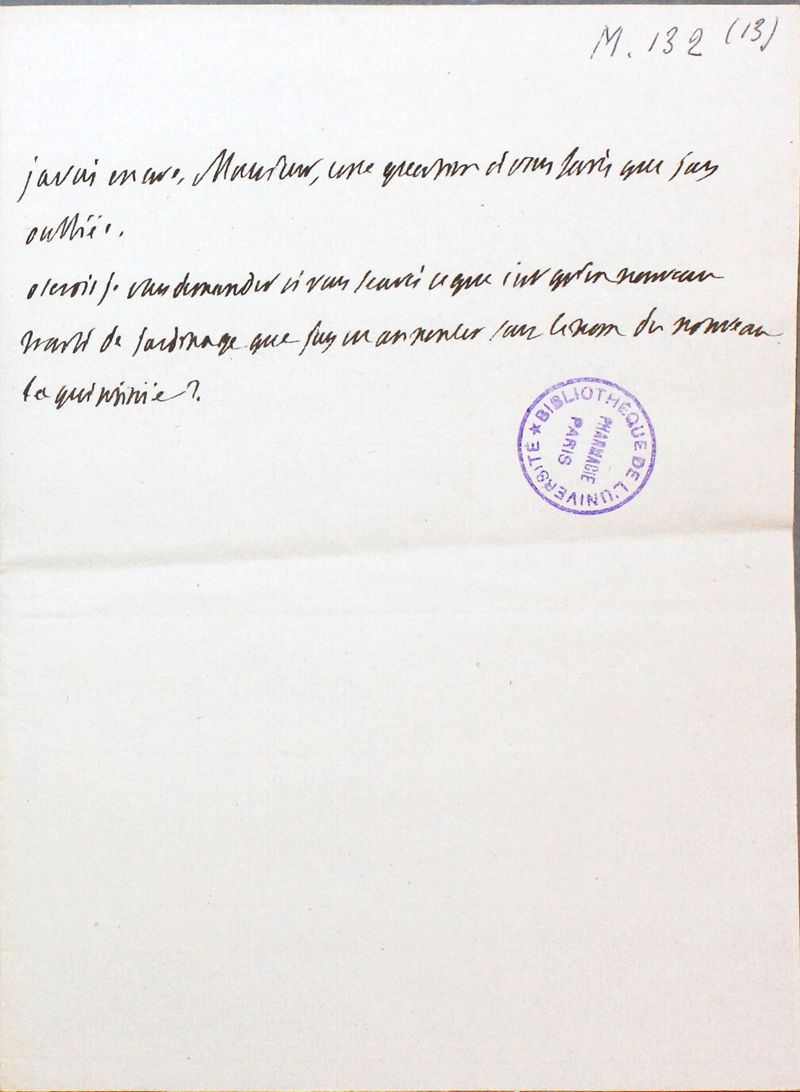 M. 132 (13)
javai encore, Monsieur, une question a vous faire que jay
oubliée.
oserois je vous demander si vous scavés ce que c'est qu'un nouveau
traité de jardinage que jay vu annoncer sous le nom du nouveau
la quintinie ?
BIBLIOTHÈQUE DE L'UNIVERSITÉ ★
PHARMACIE
PARIS